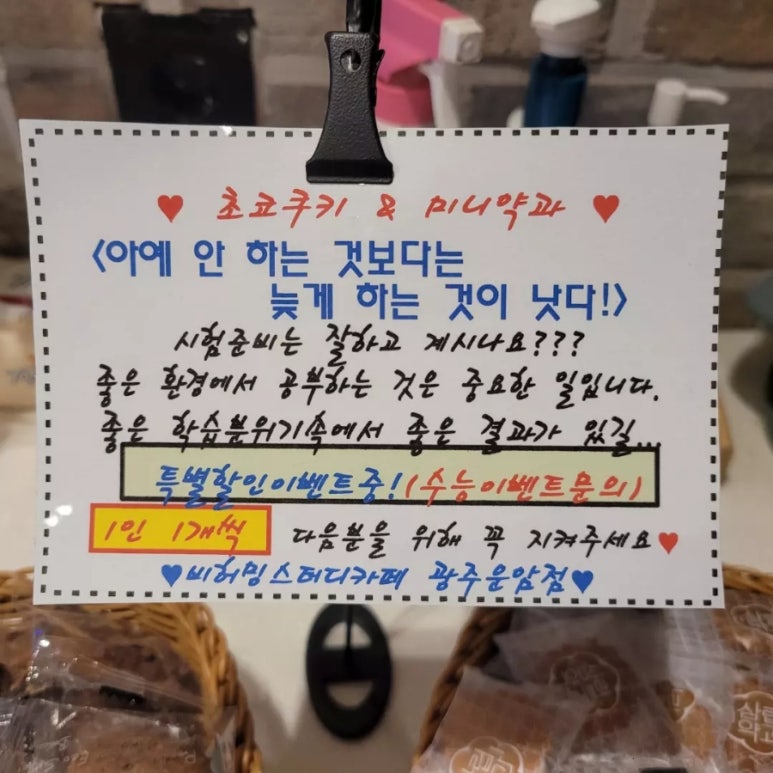 ♥ 초코쿠키 & 미니약과 ♥
<아예 안 하는 것보다는
늦게 하는 것이 낫다!>
시험준비는 잘하고 계시나요???
좋은 환경에서 공부하는 것은 중요한 일입니다.
좋은 학습분위기속에서 좋은 결과가 있길...
특별할인이벤트중!(수능이벤트문의)
1인 1개씩 다음분을 위해 꼭 지켜주세요♥
♥비허밍스터디카페 광주운암점♥